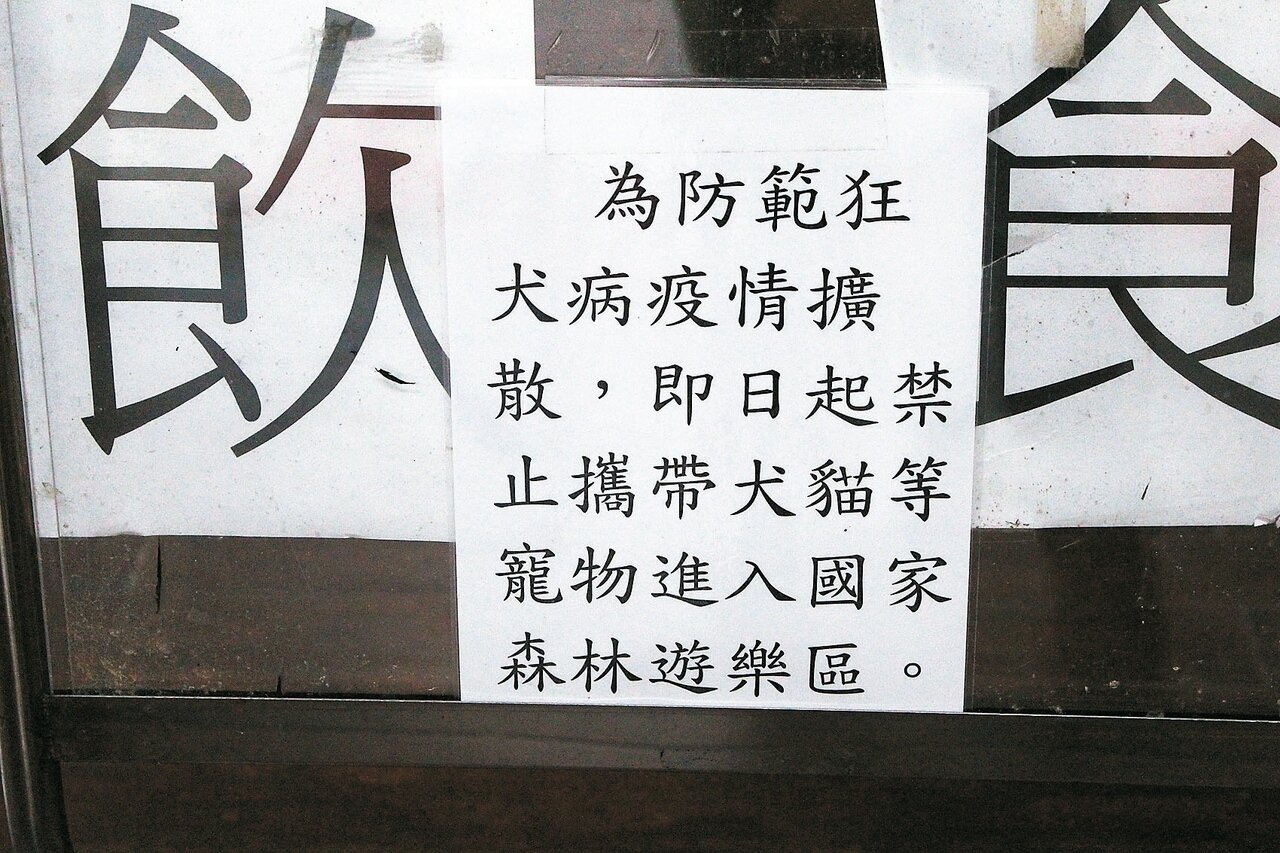 飲
食
為防範狂
犬病疫情擴
散，即日起禁
止攜帶犬貓等
寵物進入國家
森林遊樂區。